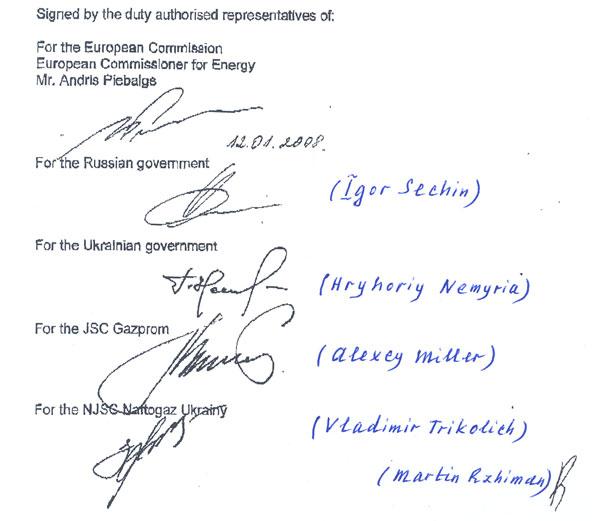 Signed by the duty authorised representatives of:
For the European Commission
European Commissioner for Energy
Mr. Andris Piebalgs
12.01.2008.
For the Russian government
(Igor Sechin)
For the Ukrainian government
(Hryhoriy Nemyria)
For the JSC Gazprom
(Alexey Miller)
For the NJSC Naftogaz Ukrainy
(Vladimir Trikolich)
(Martin Rzhiman)